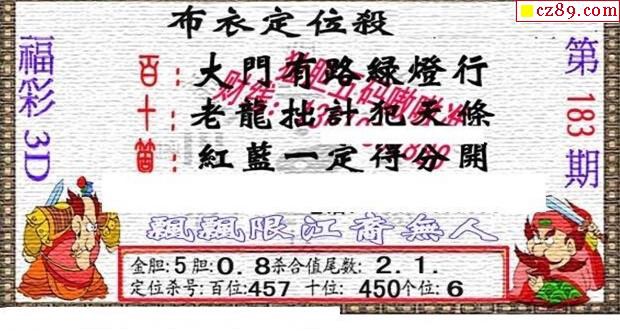 cz89.com
布衣定位殺
福彩3D
第183期
百:大門有路綠燈行
十:老龍拙計犯天條
箇:紅藍一定得分開
飄飄限江裔無人
金胆:5胆:0.8杀合值尾数:2.1.
定位杀号:百位:457 十位: 450个位:6